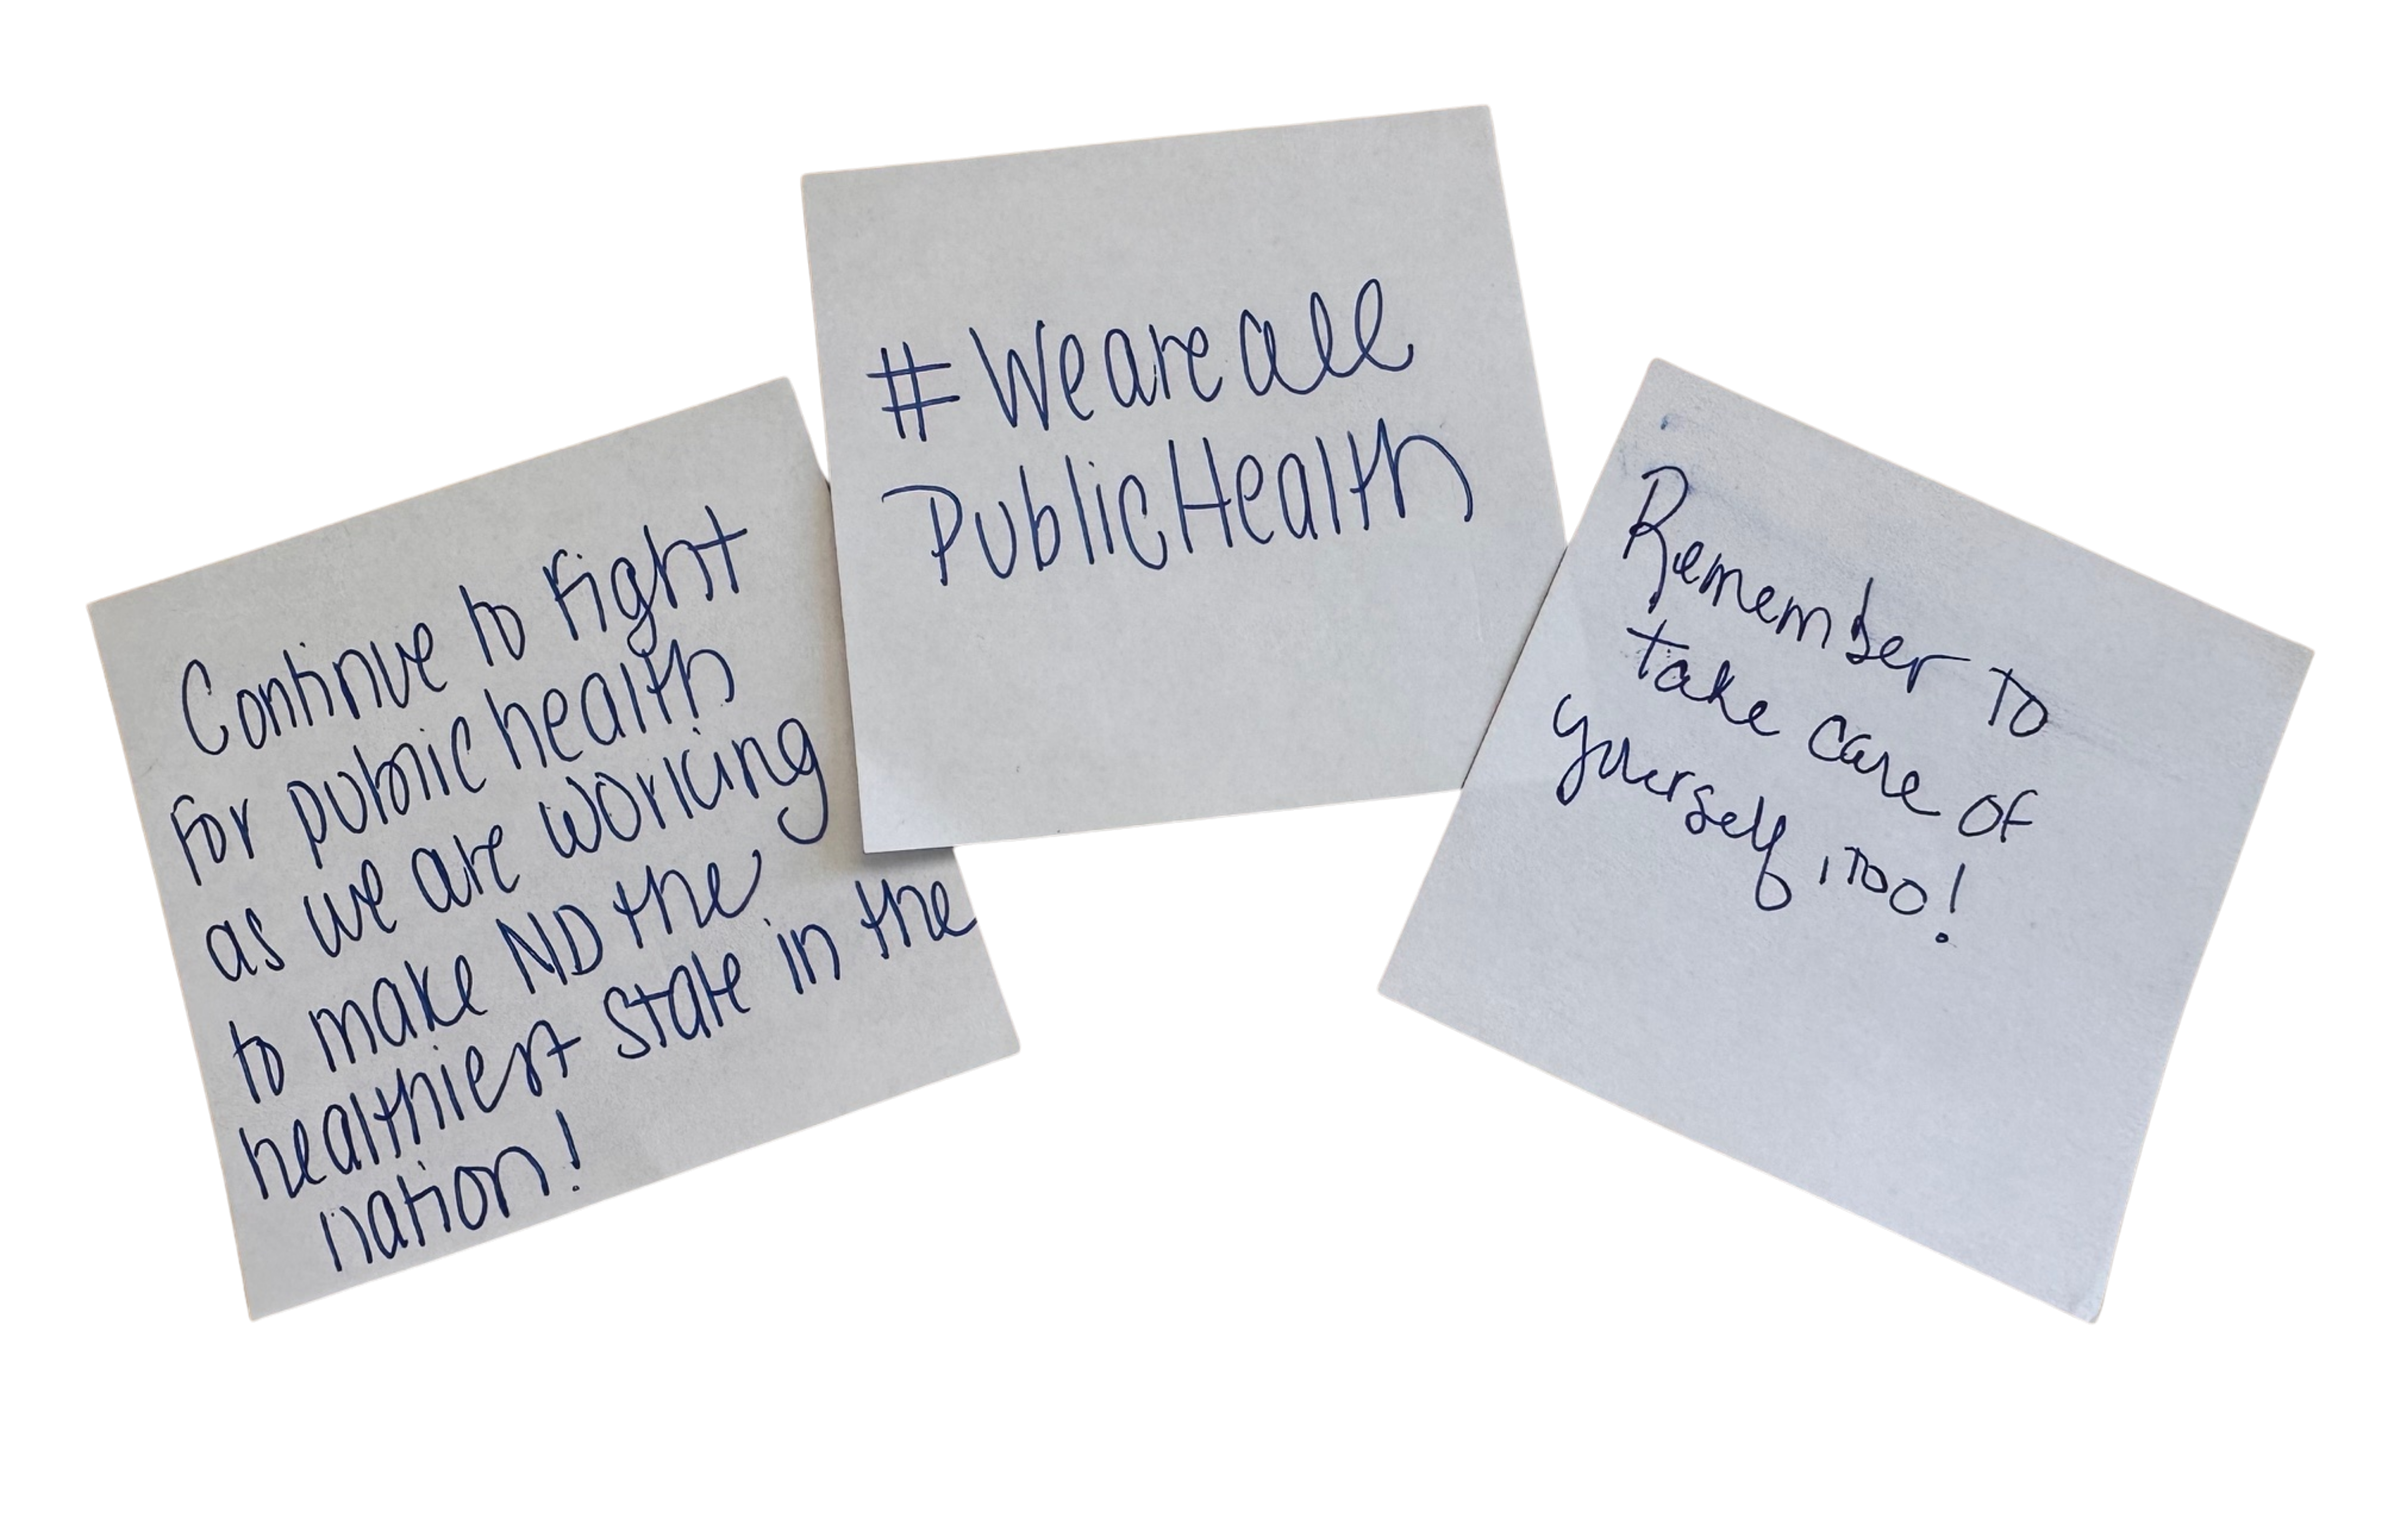 Continue to fight
for public health
as we are working
to make ND the
healthiest state in the
nation!
#Weareall
PublicHealth
Remember to
take care of
yourself, too!